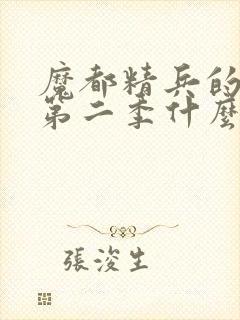 魔都精兵的
第二季什麼
張浚生